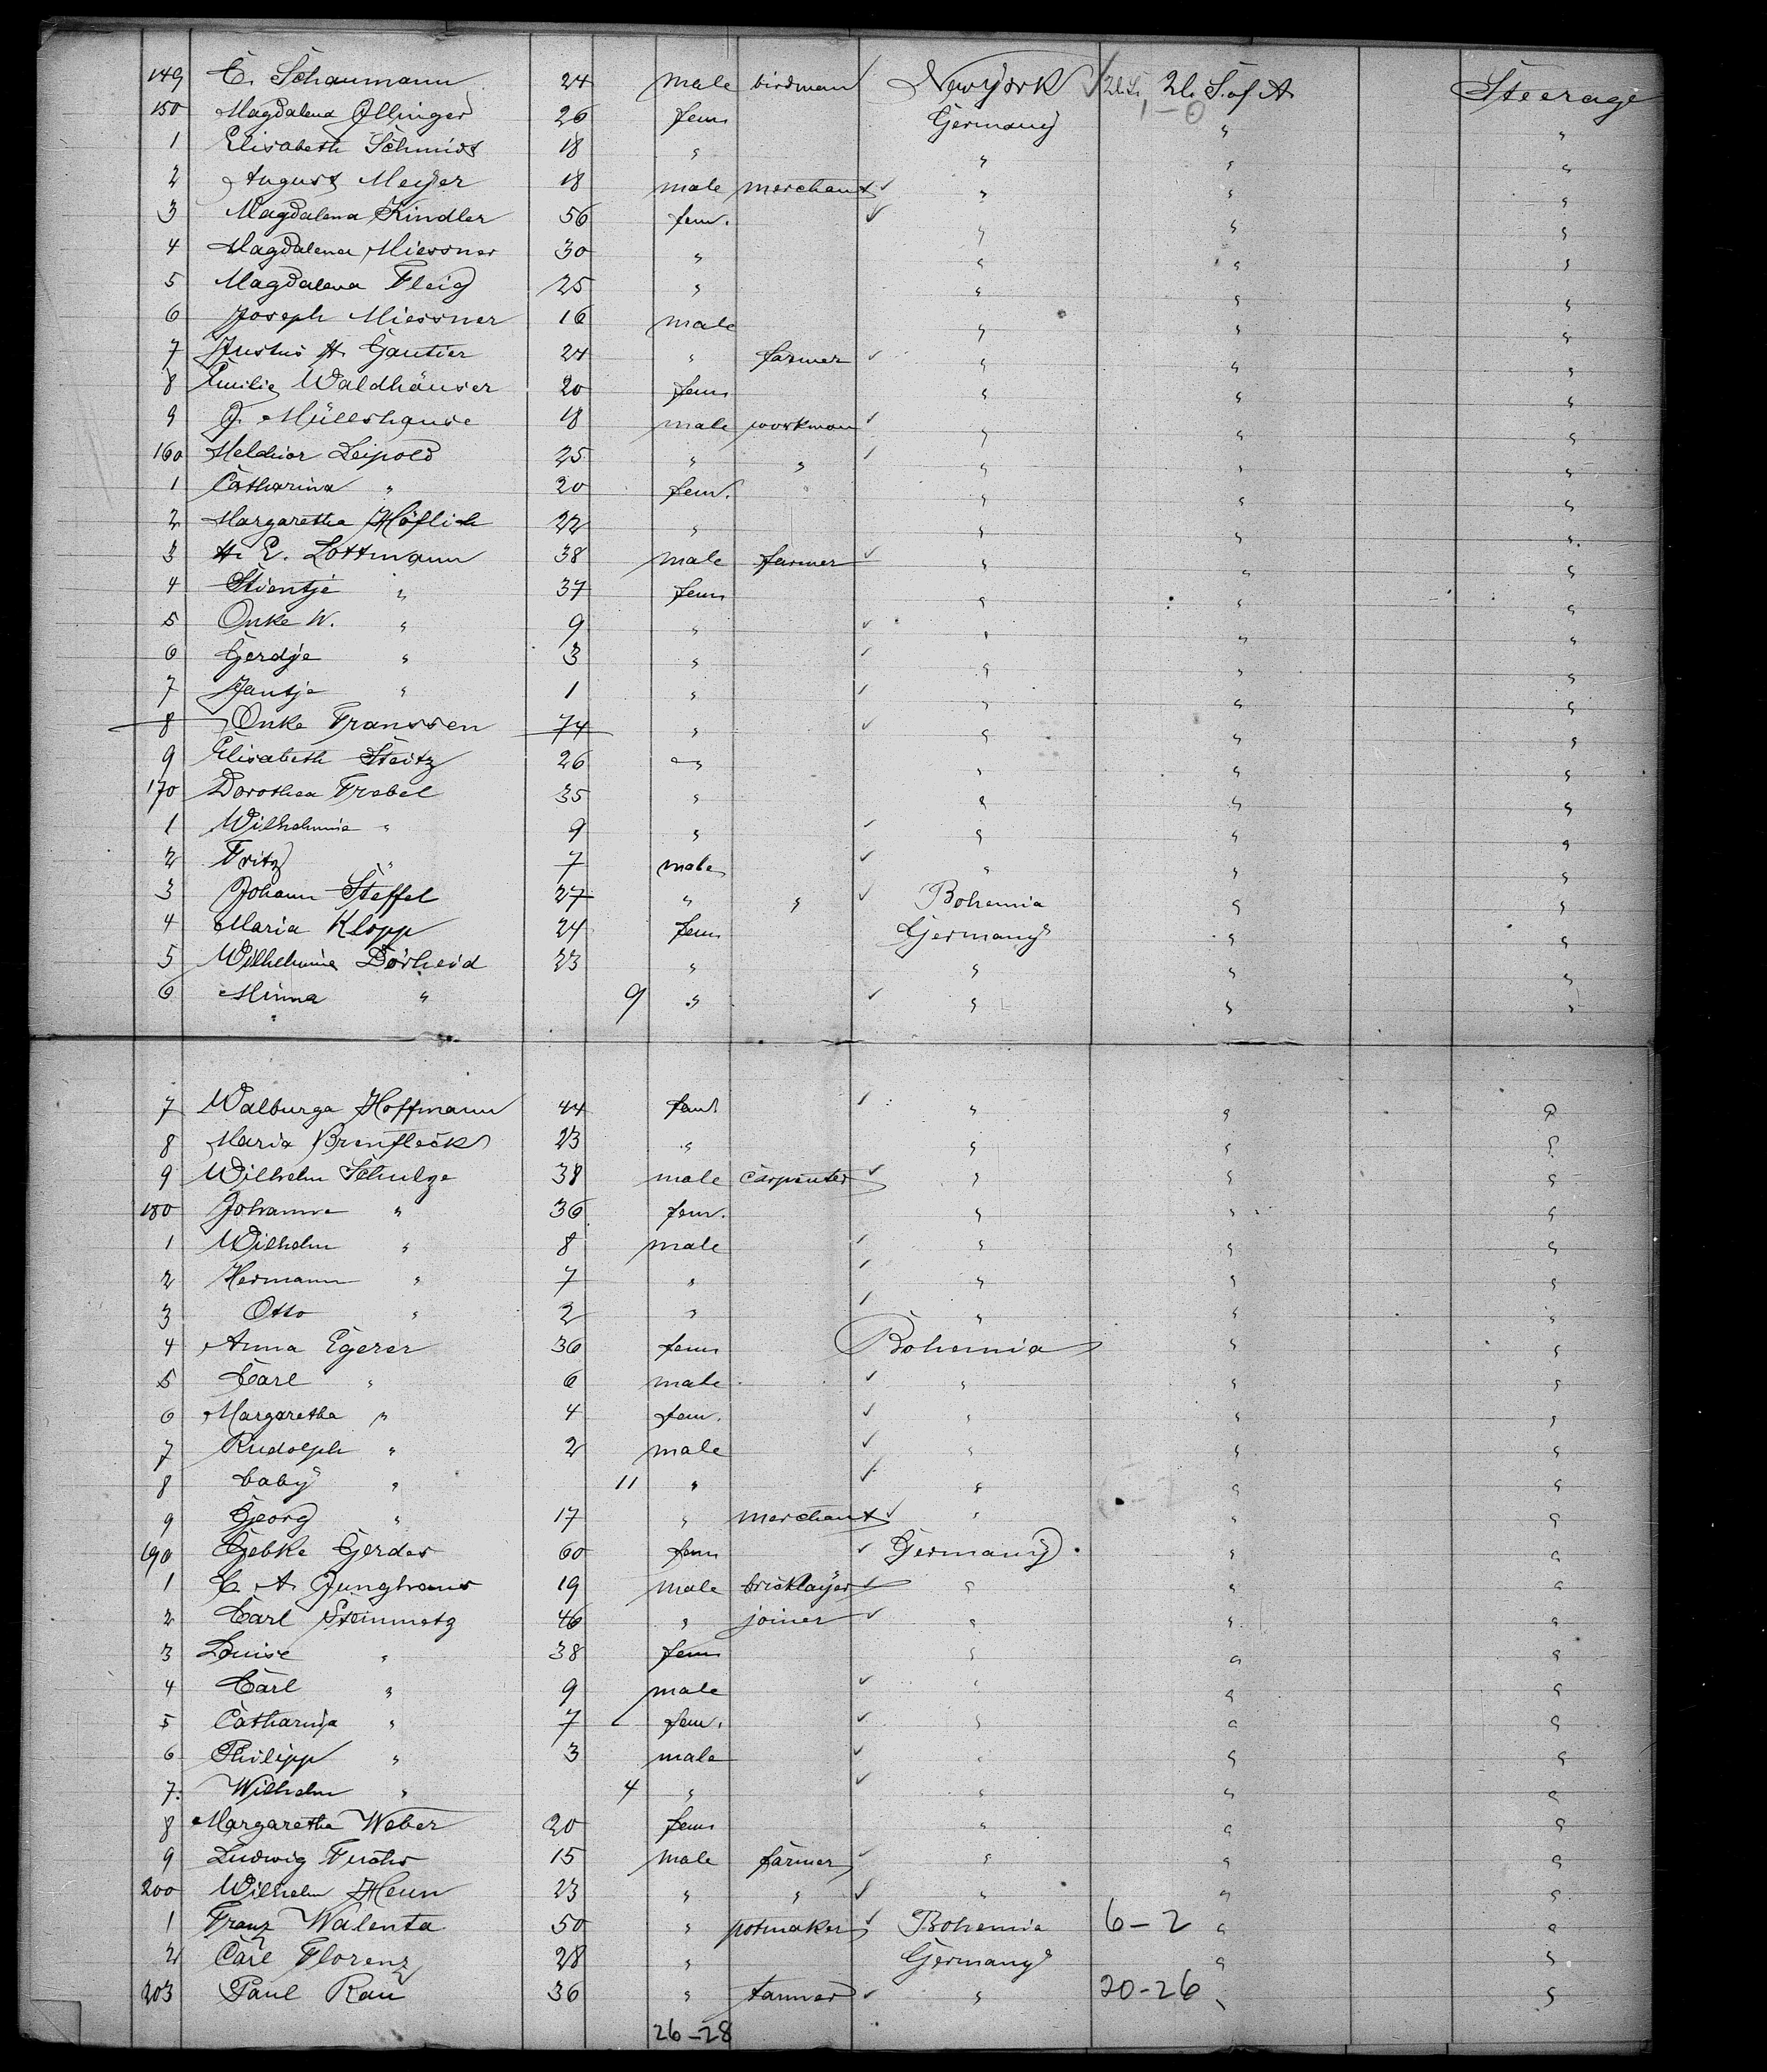 149 C. Schaumann 24 male birdman Newyork U.S. U. S. of A. Steerage
1-0
150 Magdalena Illinger 26 fem Germany " "
1 Elisabeth Schmidt 18 " " " "
2 August Meyer 18 male merchant " " "
3 Magdalena Kindler 56 fem. " " "
4 Magdalena Miessner 30 " " " "
5 Magdalena Fleig 25 " " " "
6 Joseph Miessner 16 male " " "
7 Justus H. Gautier 24 " farmer " " "
8 Emilie Waldhäuser 20 fem " " "
9 J. Müllshause 18 male workman " " "
160 Melchior Leipold 25 " " " " "
1 Catharina " 20 fem. " " "
2 Margaretha Höflich 22 " " " "
3 H. E. Lottmann 38 male farmer " " "
4 Stientje " 37 fem " " "
5 Onke W. " 9 " " " "
6 Gerdje " 3 " " " "
7 Jantje " 1 " " " "
8 Onke Franssen 74 " " " "
9 Elisabeth Steitz 26 " " " "
170 Dorothea Trebel 35 " " " "
1 Wilhelmine " 9 " " " "
2 Fritz " 7 male " " "
3 Johann Steffel 27 " " Bohemia " "
4 Maria Klopp 24 fem Germany " "
5 Wilhelmine Dörheid 23 " " " "
6 Minna " 9 " " " "
7 Walburga Hoffmann 44 fem " " "
8 Maria Brenfleck 23 " " " "
9 Wilhelm Schulze 38 male carpenter " " "
180 Johanne " 36 fem. " " "
1 Wilhelm " 8 male " " "
2 Hermann " 7 " " " "
3 Otto " 2 " " " "
4 Anna Egerer 36 fem Bohemia " "
5 Carl " 6 male " " "
6 Margaretha " 4 fem. " " "
7 Rudolph " 2 male " " "
8 baby " 11 " " " "
9 Georg " 17 " merchant " " "
190 Gebke Gerdes 60 fem Germany " "
1 C. A. Junghans 19 male bricklayer " " "
2 Carl Steinmetz 46 " joiner " " "
3 Louise " 38 fem " " "
4 Carl " 9 male " " "
5 Catharina " 7 fem. " " "
6 Philipp " 3 male " " "
7. Wilhelm " 4 " " " "
8 Margaretha Weber 20 fem " " "
9 Ludwig 15 male farmer " " "
200 Wilhelm Henn 23 " " " " "
1 Franz Walenta 50 " potmaker Bohemia 6-2 " "
2 Carl Florenz 28 " Germany " "
203 Paul Rau 36 " tanner " 20-26 " "
26-28